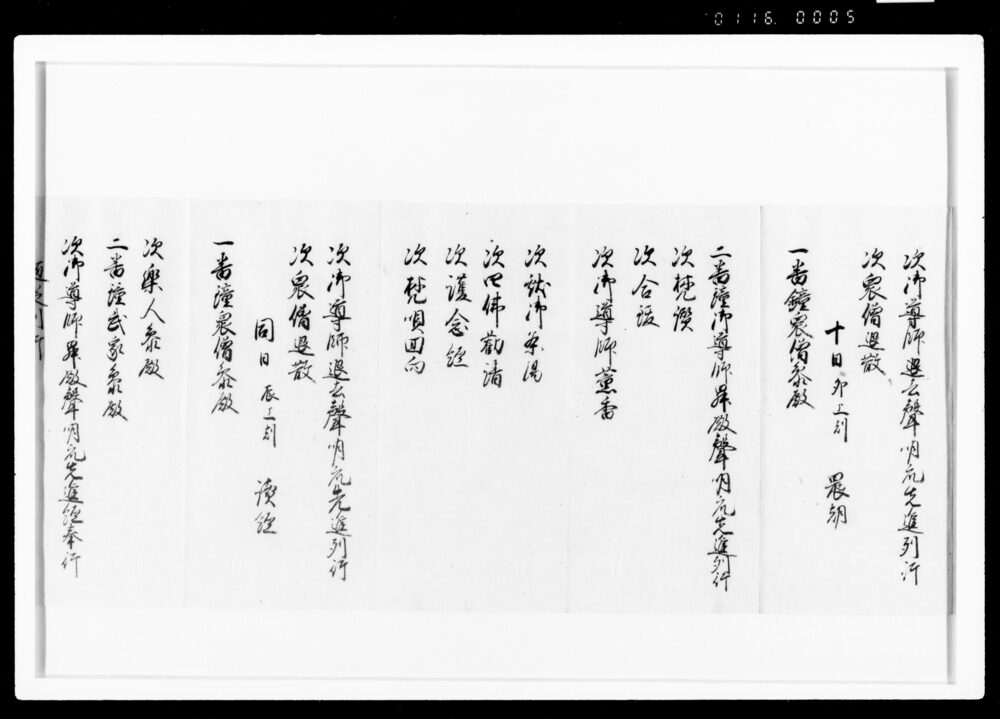 0116. 0005
次御導師退去聲明衆先進列行
次衆僧退散
十日 卯上刻 晨朝
一番鐘衆僧参殿
二番鐘御導師昇殿聲明衆先進列行
次梵讃
次合鈸
次御導師薫香
次献御茶湯
次四佛勧請
次護念經
次梵唄回向
次御導師退去聲明衆先進列行
次衆僧退散
同日 辰上刻 讀經
一番鐘衆僧参殿
次樂人参殿
二番鐘武家参殿
次御導師昇殿聲明衆先進經奉行